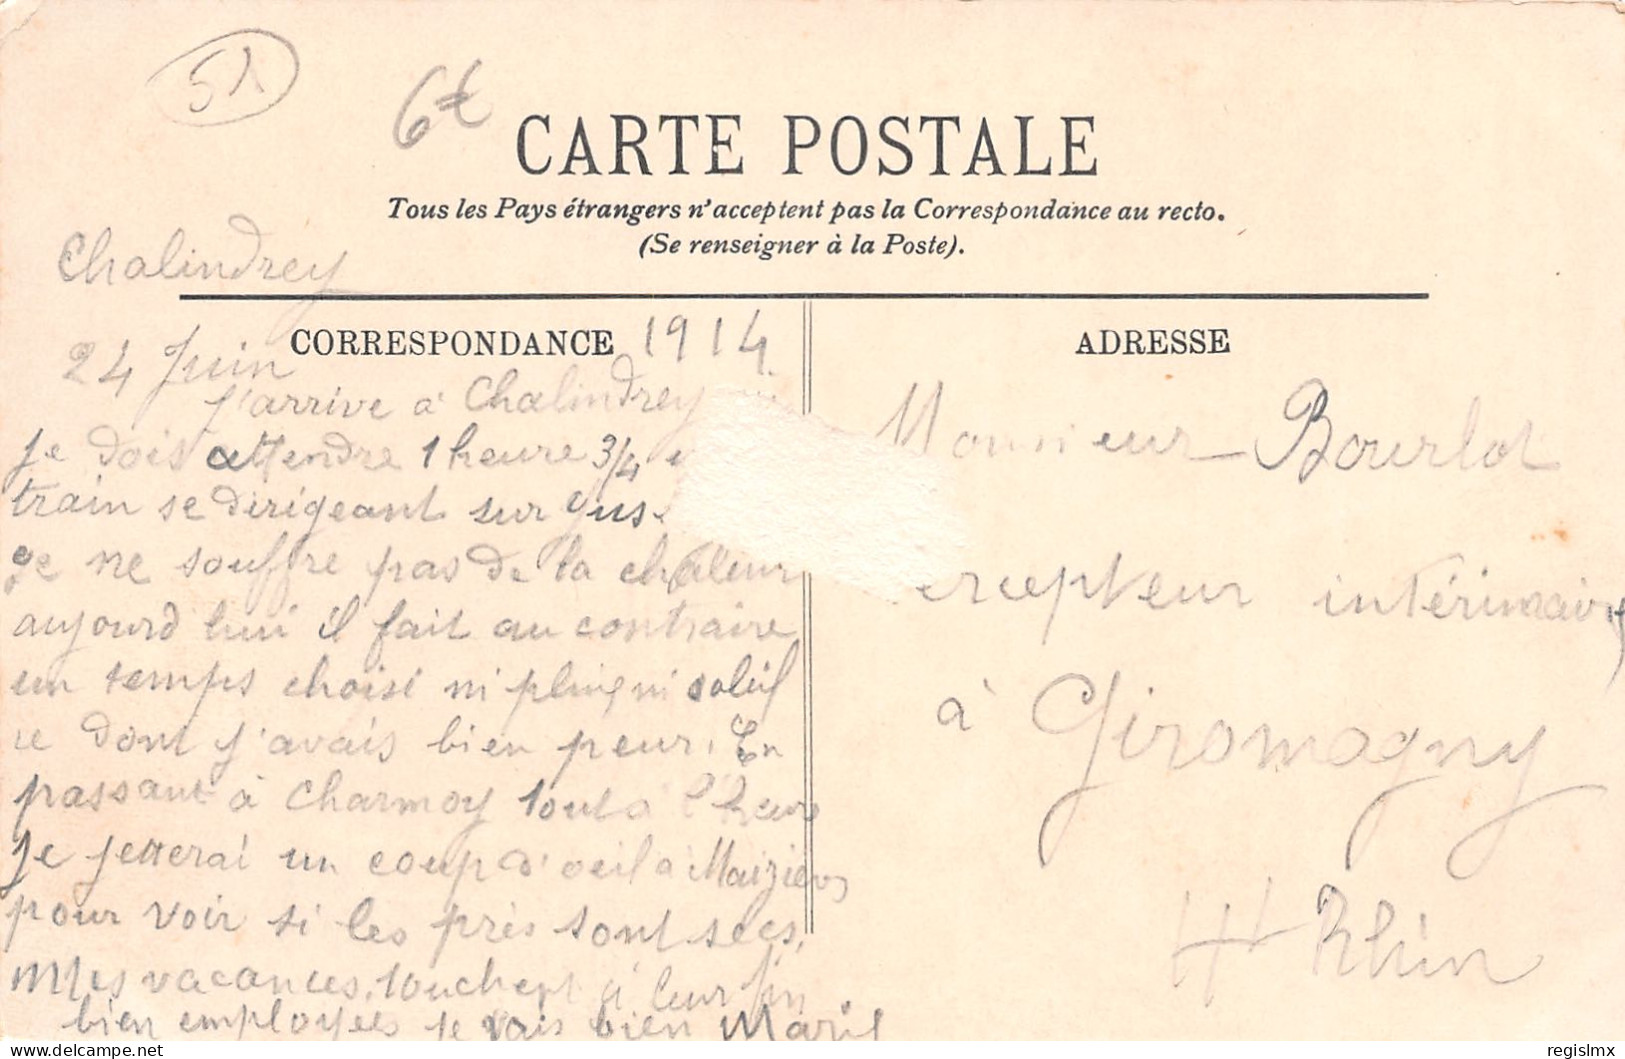 51
6€
CARTE POSTALE
Tous les Pays étrangers n'acceptent pas la Correspondance au recto.
(Se renseigner à la Poste).
Chalindrey
CORRESPONDANCE 1914
24 Juin
J'arrive à Chalindrey
je dois attendre 1 heure 3/4 u
train se dirigeant sur Gus
je ne souffre pas de la chaleur
aujourd hui il fait au contraire
un temps choisi ni pluie ni soleil
ce dont j'avais bien peur. En
passant à Charmoy tout à l'heure
je jetterai un coup d'oeil à Maizières
pour voir si les près sont secs.
Mes vacances touchent à leur fin
bien employées je vais bien Marie
ADRESSE
Monsieur Bourlot
ercepteur intérimaire
à Giromagny
Ht Rhin
regislmx
delcampe.net